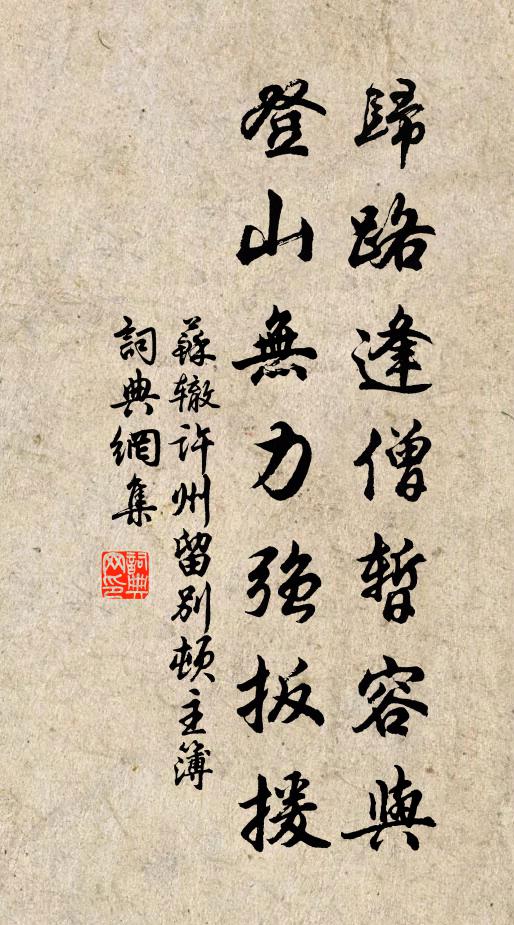 歸路逢僧暫容與
登山無力強扳援
蘇辙許州留別頓主簿
詞典網集
詞典
网印